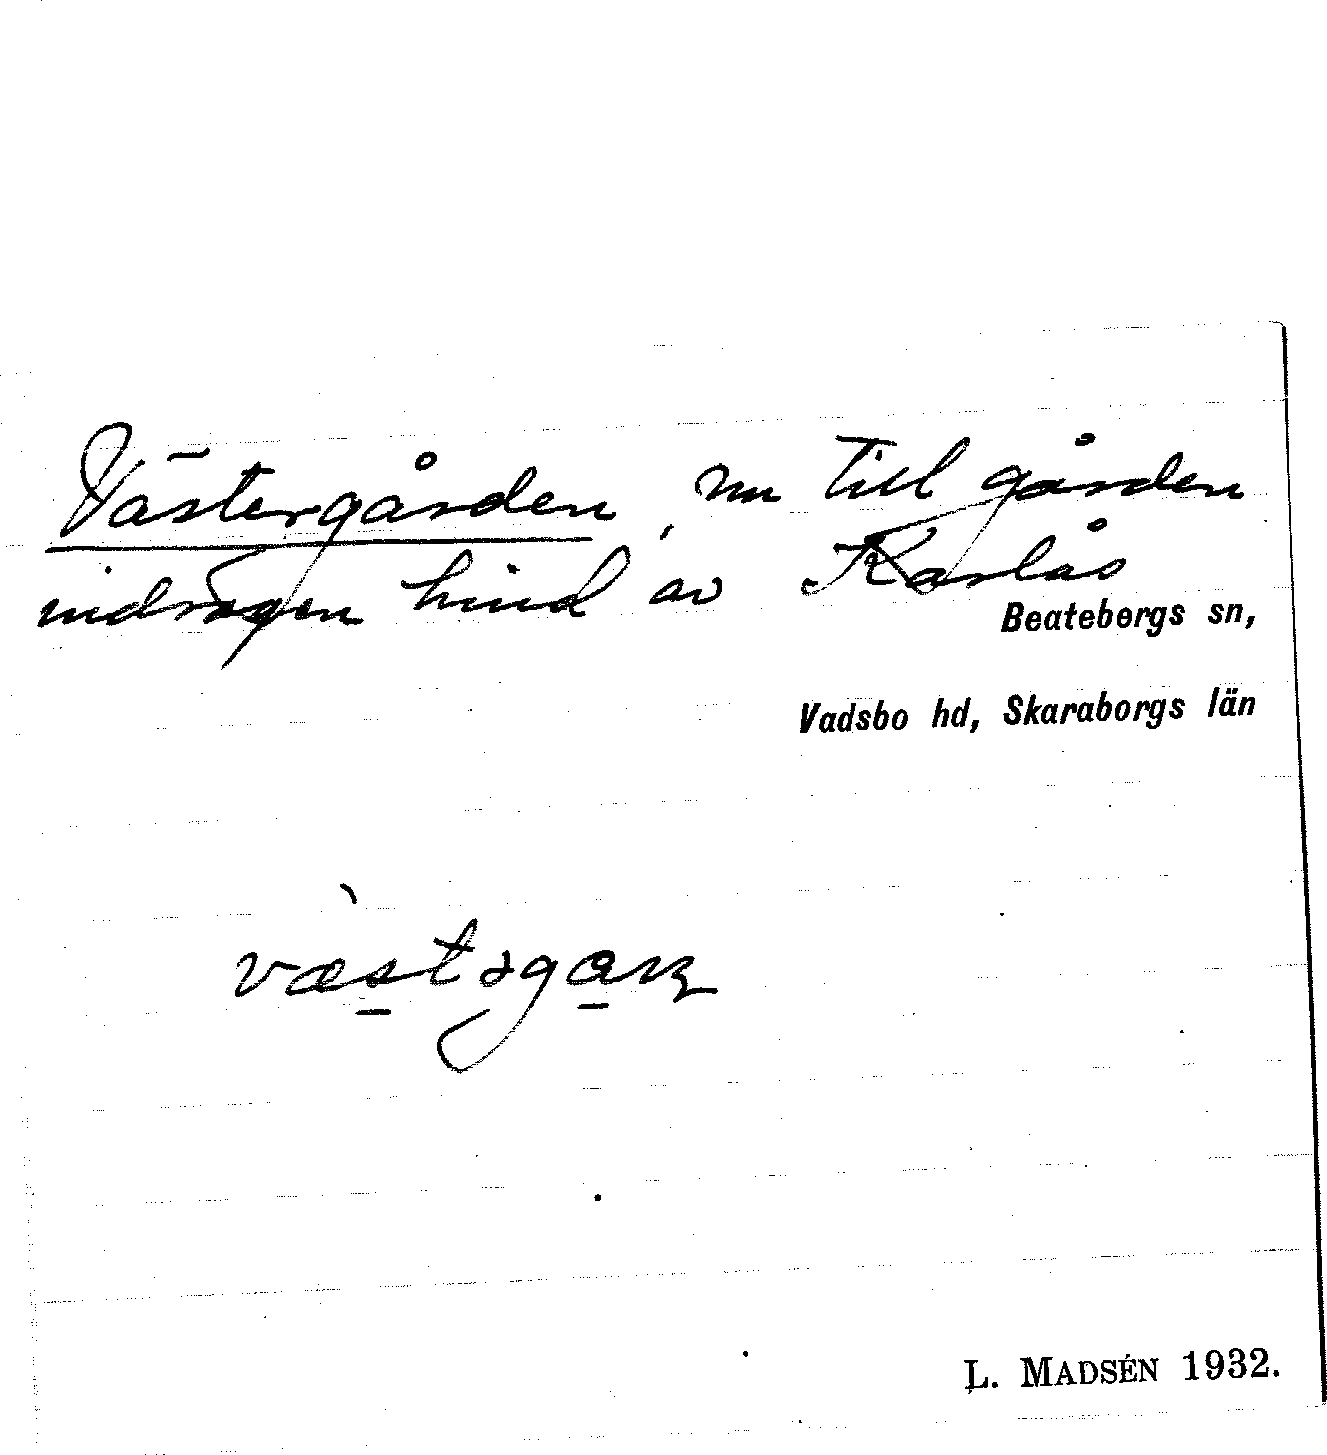 Västergården, nu till gården
indragen hind av Karlås
Beatebergs sn,
Vadsbo hd, Skaraborgs län
L. MADSÉN 1932.